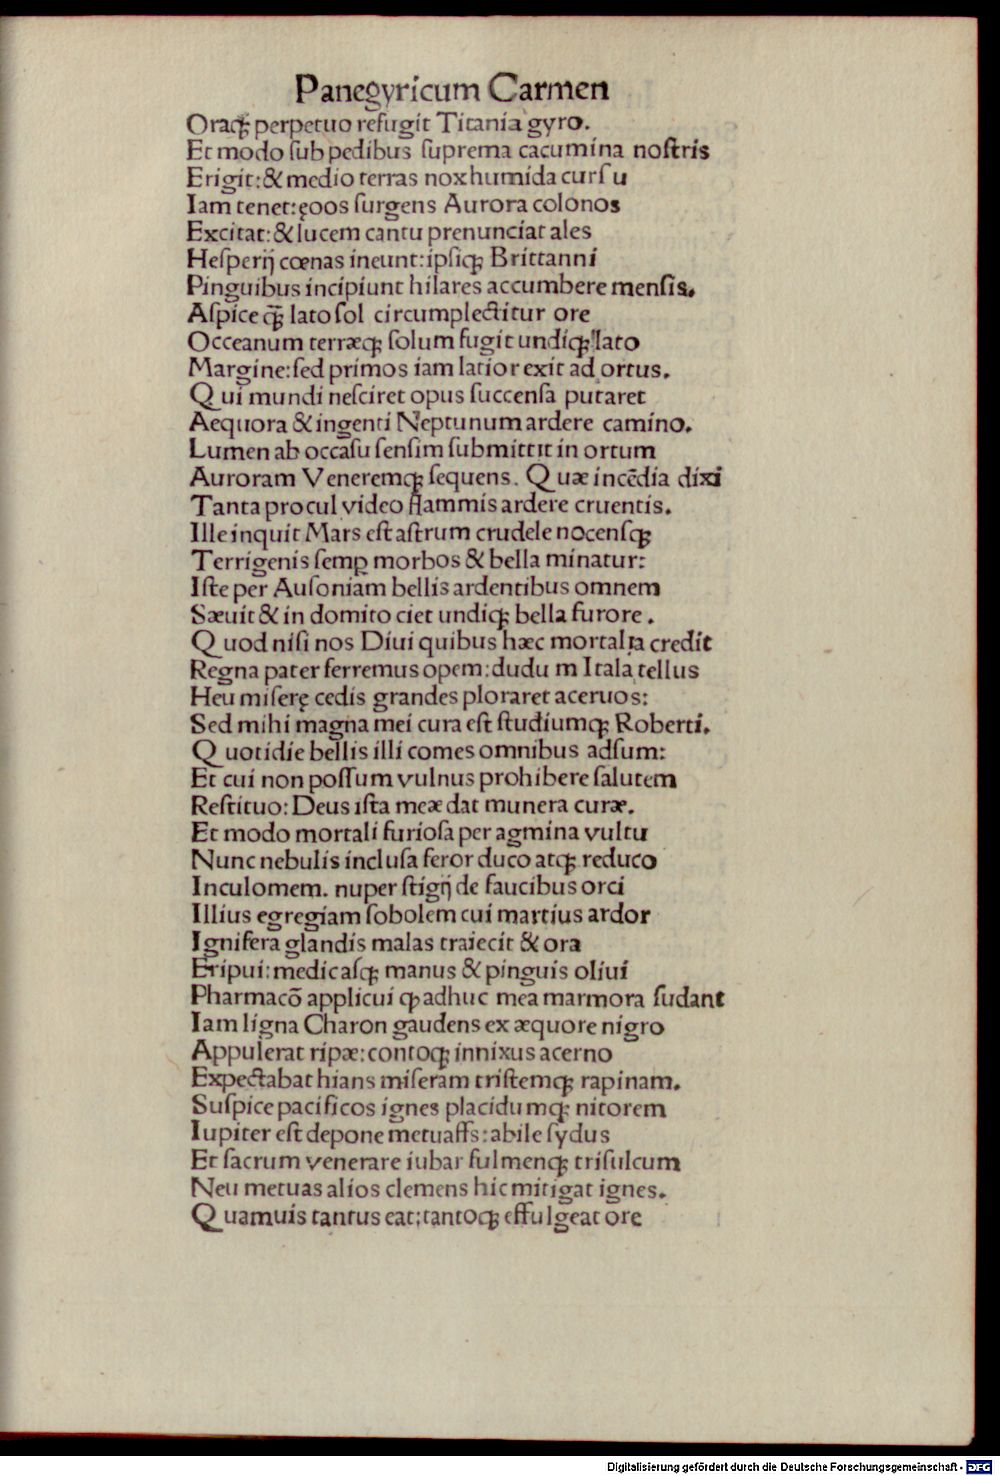 Panegyricum Carmen
Oraqꝫ perpetuo refugit Titania gyro.
Et modo ſub pedibus ſuprema cacumina noſtris
Erigit: & medio terras nox humida curſu
Iam tenet: ęoos ſurgens Aurora colonos
Excitat: & lucem cantu prenunciat ales
Heſperĳ cœnas ineunt: ipſiqꝫ Brittanni
Pinguibus incipiunt hilares accumbere menſis.
Aſpice qꝫ̃ lato ſol circumplectitur ore
Occeanum terræqꝫ ſolum fugit undiqꝫ lato
Margine: ſed primos iam latior exit ad ortus.
Qui mundi neſciret opus ſuccenſa putaret
Aequora & ingenti Neptunum ardere camino.
Lumen ab occaſu ſenſim ſubmittit in ortum
Auroram Veneremqꝫ ſequens. Quæ incēdia dixi
Tanta procul video flammis ardere cruentis.
Ille inquit Mars eſt aſtrum crudele nocenſqꝫ
Terrigenis ſemꝑ morbos & bella minatur:
Iſte per Auſoniam bellis ardentibus omnem
Sæuit & in domito ciet undiqꝫ bella furore.
Quod niſi nos Diui quibus hæc mortalia credit
Regna pater ferremus opem: dudum Itala tellus
Heu miſerę cedis grandes ploraret aceruos:
Sed mihi magna mei cura eſt ſtudiumqꝫ Roberti.
Quotidie bellis illi comes omnibus adſum:
Et cui non poſſum vulnus prohibere ſalutem
Reſtituo: Deus iſta meæ dat munera curæ.
Et modo mortali furioſa per agmina vultu
Nunc nebulis incluſa feror duco atqꝫ reduco
Inculomem. nuper ſtigĳ de faucibus orci
Illius egregiam ſobolem cui martius ardor
Ignifera glandis malas traiecit & ora
Eripui: medicaſqꝫ manus & pinguis oliui
Pharmacō applicui ꝙ adhuc mea marmora ſudant
Iam ligna Charon gaudens ex æquore nigro
Appulerat ripæ: contoqꝫ innixus acerno
Expectabat hians miſeram triſtemqꝫ rapinam.
Suſpice pacificos ignes placidumqꝫ nitorem
Iupiter eſt depone metuaſſ: abile ſydus
Et ſacrum venerare iubar fulmenqꝫ triſulcum
Neu metuas alios clemens hic mitigat ignes.
Quamuis tantus eat: tantoqꝫ effulgeat ore
Digitalisierung gefördert durch die Deutsche Forschungsgemeinschaft - DFG